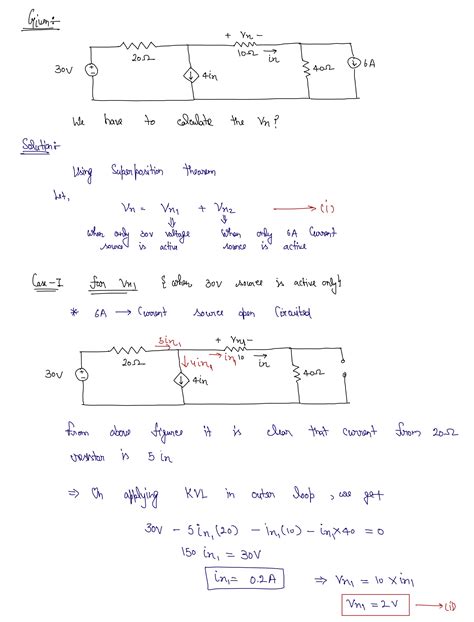 Given:-
+ Vn -
20Ω
10Ω
in
30V
4in
40Ω
6A
We have to calculate the Vn?
Solution:-
Using Superposition theorem
Let,
Vn = Vn1 + Vn2 → (i)
When only 30V voltage source is active
When only 6A current source is active
Case-I for Vn1 { when 30V source is active only}
* 6A → Current source open Circuited
5in1
+ Vn1 -
20Ω
4in1
in1
10
in
30V
4in
40Ω
from above figure it is clear that current from 20Ω
resistor is 5in
⇒ On applying KVL in outer loop, we get
30V - 5in1(20) - in1(10) - in1×40 = 0
150 in1 = 30V
in1 = 0.2A ⇒ Vn1 = 10 × in1
Vn1 = 2V → (ii)